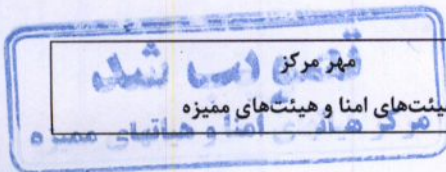 مهر مرکز
یئت‌های امنا و هیئت‌های ممیزه
تصویب شد
مرکز هیاتهای امنا و هیاتهای ممیزه